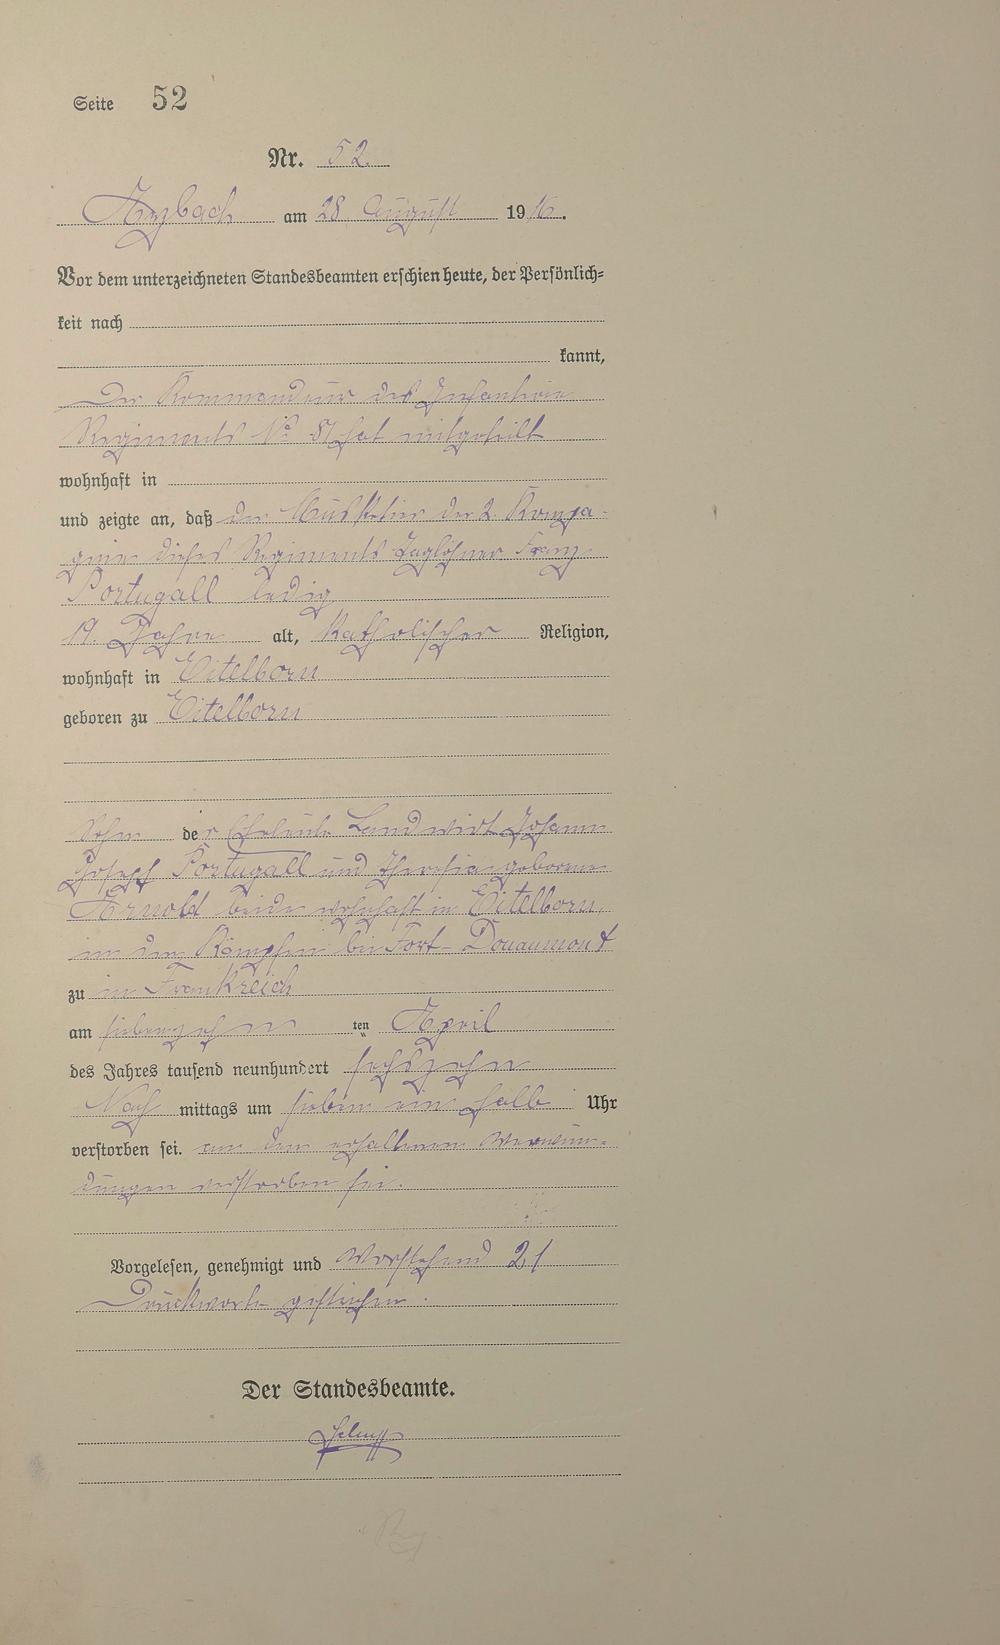 Seite 52
Nr. 52.
Arzbach am 28 August 1916.
Vor dem unterzeichneten Standesbeamten erschien heute, der Persönlich=
keit nach
kannt,
Der Kommandeur des Infanterie
Regiments No 81 hat mitgeteilt
wohnhaft in
und zeigte an, daß der Musketier der 2. Kompa-
gnie dieses Regiments Taglöhner Franz
Portugall ledig
19 Jahre alt, katholischer Religion,
wohnhaft in Eitelborn
geboren zu Eitelborn
Sohn der Eheleute Landwirt Johann
Joseph Portugall und Theresia geborene
Arnold beide wohnhaft in Eitelborn,
in den Kämpfen bei Fort-Douaumont
zu in Frankreich
am siebenzehn ten April
des Jahres tausend neunhundert sechszehn
Nach mittags um sieben ein halb Uhr
verstorben sei. an den erhaltenen Verwun-
dungen verstorben sei.
Vorgelesen, genehmigt und Vorstehend 21
Druckworte gestrichen.
Der Standesbeamte.